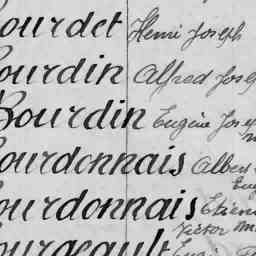 ourdet Henri Joseph
ourdin Alfred Jose
Bourdin Eugène Jose
ourdonnais Albert
ourdonnais Etien
Victor
ourgeault